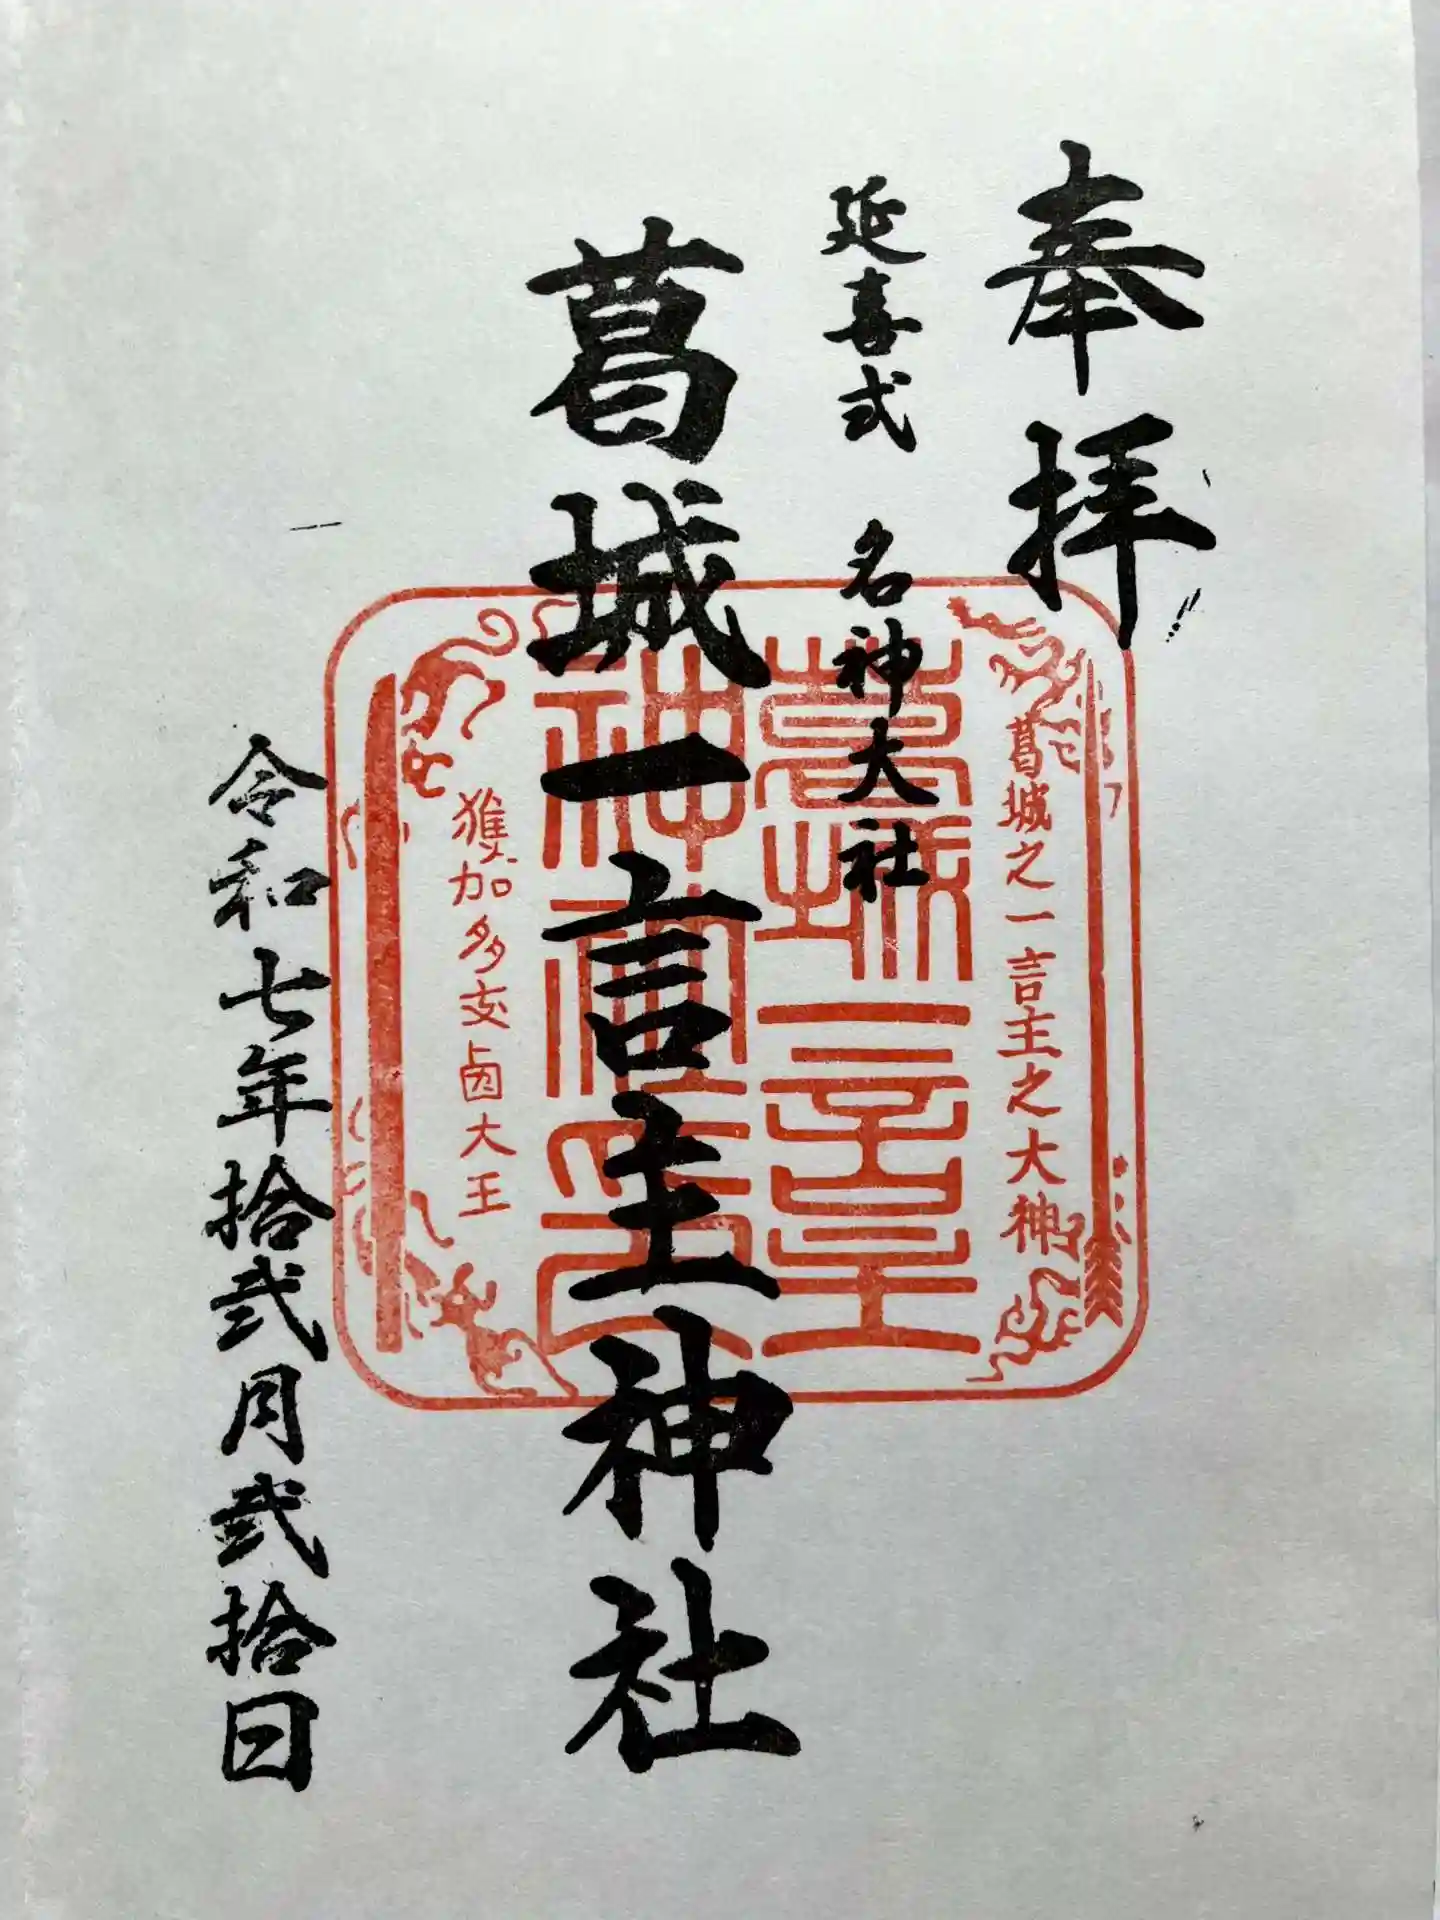 奉拝
延喜式 名神大社
葛城一言主神社
令和七年拾弐月弐拾日
葛城之一言主之大神
葛城一言主
神社之印
獲加多支鹵大王